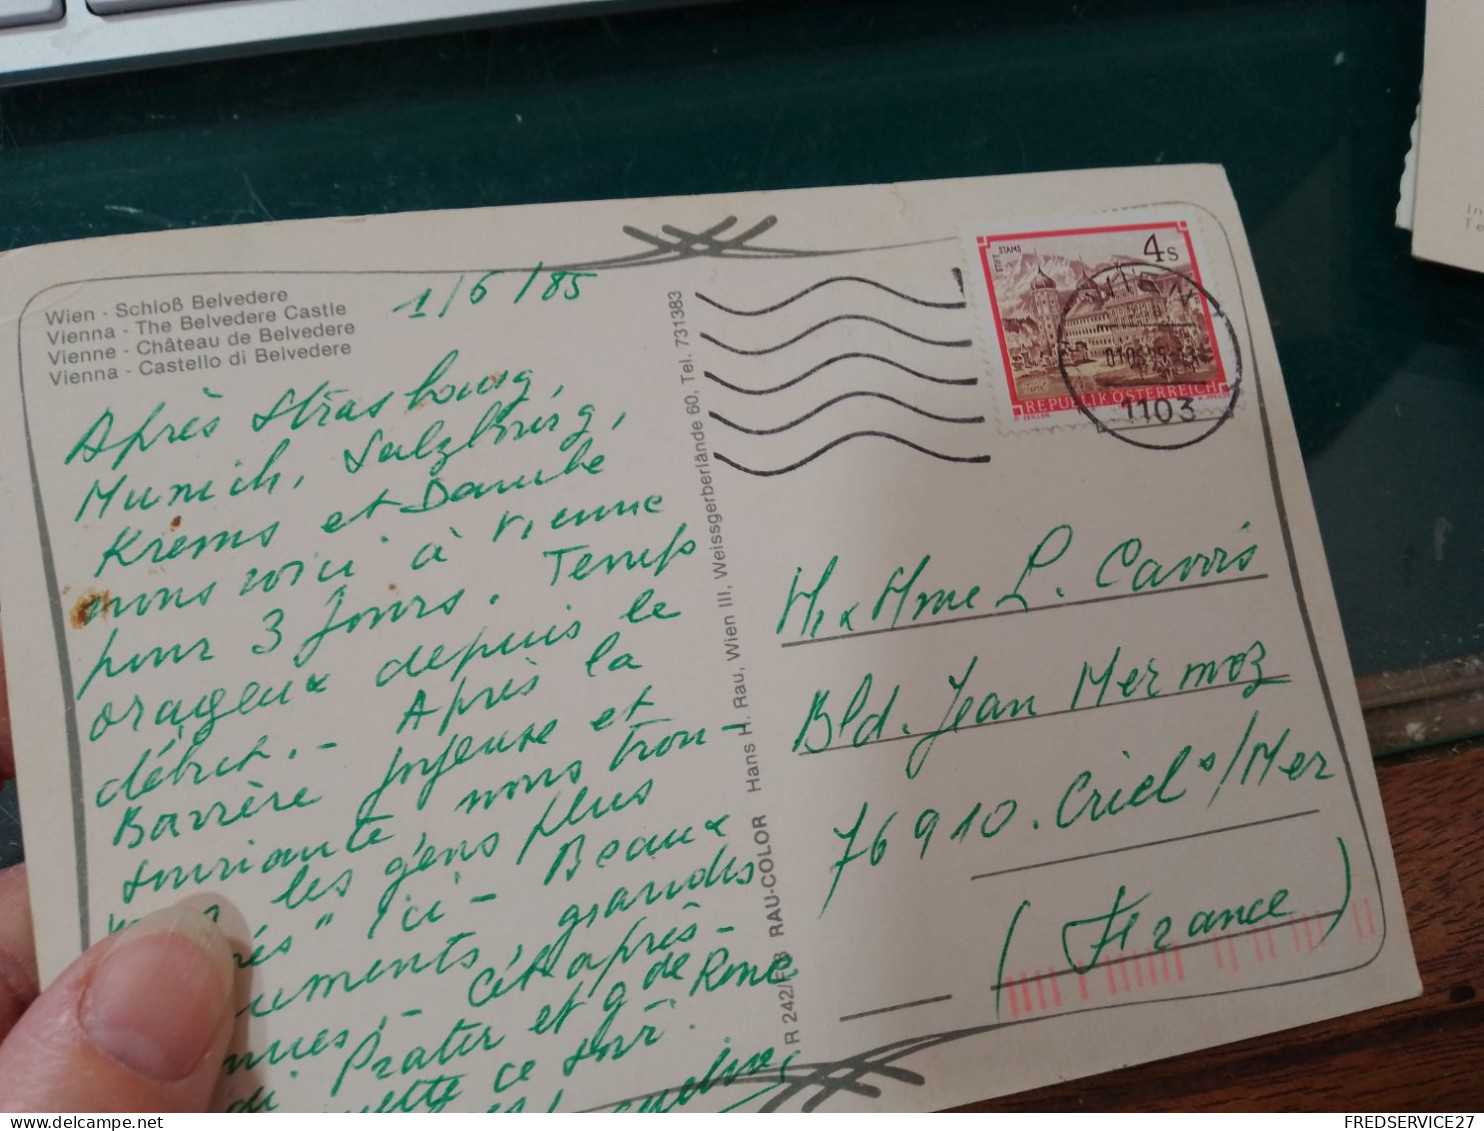 Wien - Schloß Belvedere
Vienna - The Belvedere Castle
Vienne - Château de Belvedere
Vienna - Castello di Belvedere
1/6/85
Après Strasbourg,
Munich, Salzburg,
Krems et Danube
nous voici à Vienne
pour 3 jours. Temps
orageux depuis le
début. - Après la
Bavière joyeuse et
souriante, nous trou-
les gens plus
" ici - Beaux
uments, grandes
nues, - Cet après-
di Prater et
ce soir.
R 242/ RAU-COLOR Hans H. Rau, Wien III, Weissgerberlände 60, Tel. 731383
STIFT STAMS
4 S
REPUBLIK ÖSTERREICH
1103
M. & Mme L. Cavois
Bld. Jean Mermoz
76910. Criel s/Mer
(France)
In
Te
FREDSERVICE27
delcampe.net